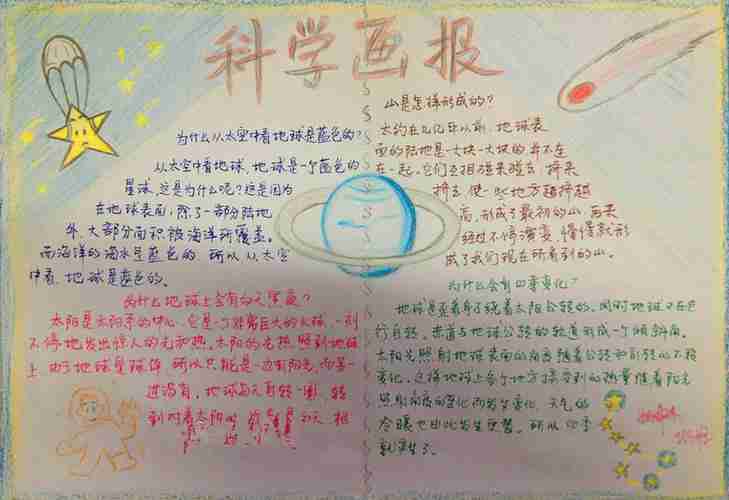 科学画报
为什么从太空中看地球是蓝色的?
从太空中看地球,地球是一个蓝色的
星球,这是为什么呢?这是因为
在地球表面,除了一部分陆地
外,大部分面积被海洋所覆盖。
而海洋的海水呈蓝色的,所以从太空
中看,地球是蓝色的。
为什么地球上会有白天黑夜?
太阳是太阳系的中心,它是一个非常巨大的火球,一刻
不停地发出惊人的光和热,太阳的光热照到地球
上,由于地球是球体,所以只能是一边有阳光,而另一
进没有。地球每天自转一圈,转
到对着太阳时
白天,相
山是怎样形成的?
大约在几亿年以前,地球表
面的陆地是一大块一大块的并不在
在一起。它们互相撞来碰去,挤来
挤去,使一些地方越挤越
高,形成了最初的山,再
经过不停演变,慢慢就形
成了我们现在所看到的山。
为什么会有四季变化?
地球是歪着身子绕着太阳公转的,同时地球又在进
行自转,赤道与地球公转的轨道形成一个倾斜角。
太阳光照射地球表面的角度随着公转和自转的不段
变化。这样地球上各个地方接受到的热量随着阳光
照射角度的变化而发生变化,天气的
冷暖也由此发生更替。所以四季
就产生了。